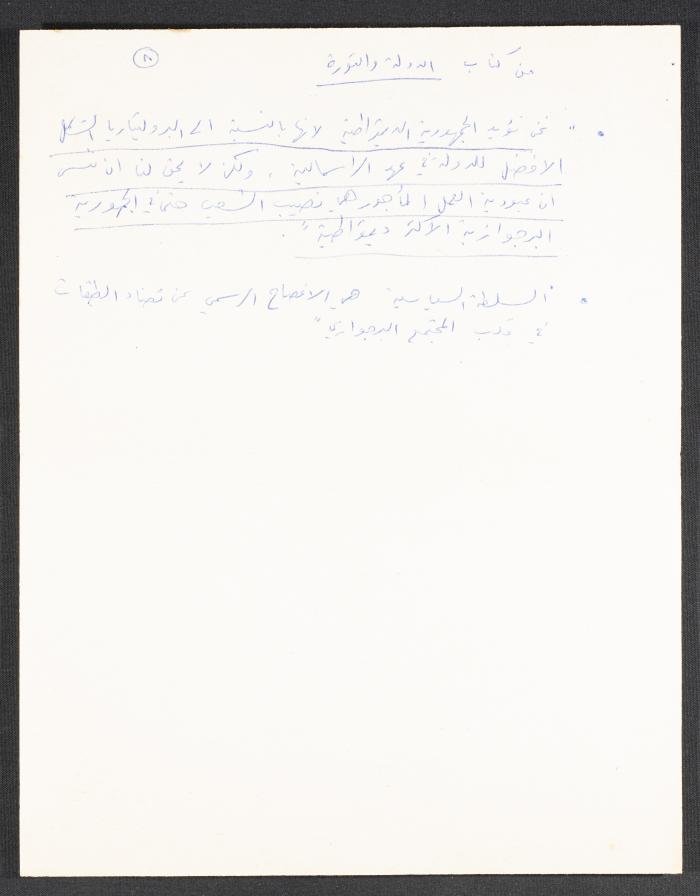 من كتاب الدولة والثورة
• " نحن نؤيد الجمهورية الديمقراطية لانها بالنسبة الى البروليتاريا الشكل
الافضل للدولة في عهد الراسمالية ، ولكن لا يحق لنا ان ننسى
ان عبودية العمل المأجور هي نصيب الشعب حتى في الجمهورية
البرجوازية الاكثر ديمقراطية " .
• " السلطة السياسية هي الافصاح الرسمي عن تضاد الطبقات
في قلب المجتمع البرجوازي "